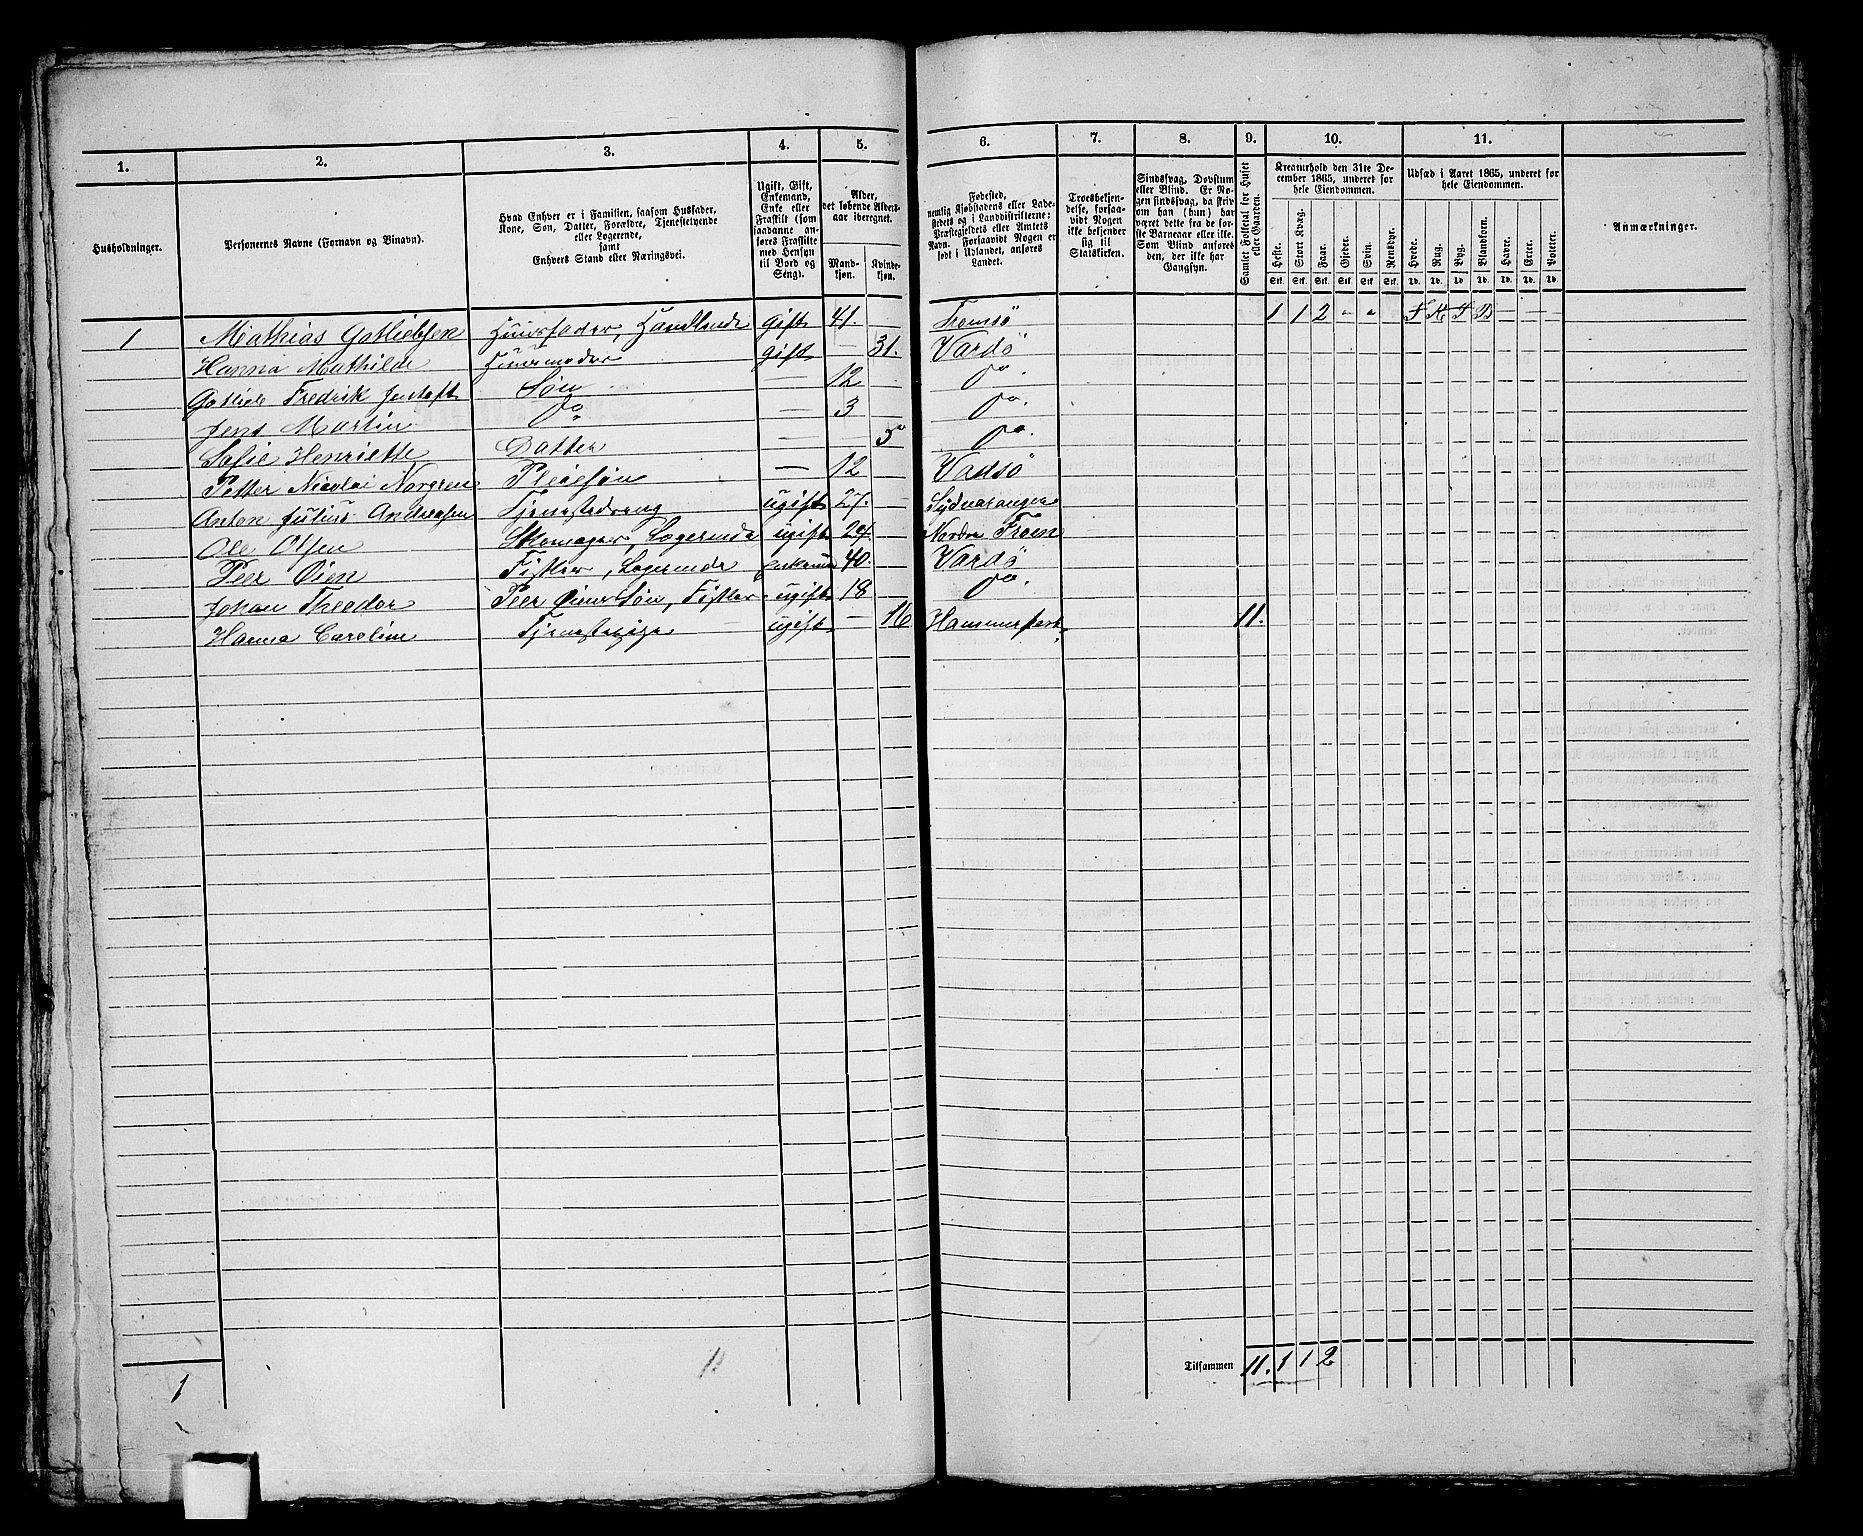 1. 2. 3. 4. 5. 6. 7. 8. 9. 10. 11.
Husholdninger.
Personernes Navne (Fornavn og Binavn).
Hvad Enhver er i Familien, saasom Husfader,
Kone, Søn, Datter, Forældre, Tjenestetyende
eller Logerende,
samt
Enhvers Stand eller Næringsvei.
Ugift, Gift,
Enkemand,
Enke eller
Fraskilt (som
saadanne an-
føres Fraskilte
med Hensyn
til Bord og
Seng).
Alder,
det løbende Alders-
aar iberegnet.
Mand-
kjøn.
Kvinde-
kjøn.
Fødested,
nemlig Kjøbstadens eller Lade-
stedets og i Landdistrikterne:
Præstegjeldets eller Amtets
Navn. Forsaavidt Nogen er
født i Udlandet, anføres
Landet.
Troesbekjen-
delse, forsaa-
vidt Nogen
ikke bekjender
sig til
Statskirken.
Sindssvag, Døvstum
eller Blind. Er No-
gen sindssvag, da skriv
om han (hun) har
været dette fra de før-
ste Barneaar eller ikke.
Som Blind anføres
den, der ikke har
Gangsyn.
Samlet Folketal for Huset
eller Gaarden.
Kreaturhold den 31te De-
cember 1865, underet for
hele Eiendommen.
Heste. Stort Kvæg. Faar. Gjeder. Svin. Rensdyr.
Stk. Stk. Stk. Stk. Stk. Stk.
Udsæd i Aaret 1865, underet for
hele Eiendommen.
Hvede. Rug. Byg. Blandkorn. Havre. Erter. Poteter.
Td. Td. Td. Td. Td. Td. Td.
Anmærkninger.
1 Mathias Gotliebsen Huusfader, Handlende gift 41. Tromsö 1 1 2 - -
Hanna Mathilde Huusmoder gift — 31. Vardö
Gotlieb Fredrik Søn — 12 Do.
Jens Martin Do — 3 Do.
Sofie Henriette Datter — 5 Do.
Petter Nicolai Norgren Pleiesøn — 12 Vadsö
Anton Julius Andreasen Tjenestedreng ugift 27. Sydvaranger
Ole Olsen Skomager, Logerende ugift 29. Nordre Froen
Peer Öien Fisker, Logerende 40. Vardö
Johan Theodor Peer Öiens Søn, Fisker ugift 18 Do.
Hanna Caroline Tjenestepige ugift — 16 Hammerfest 11.
1
Tilsammen 11. 1 1 2